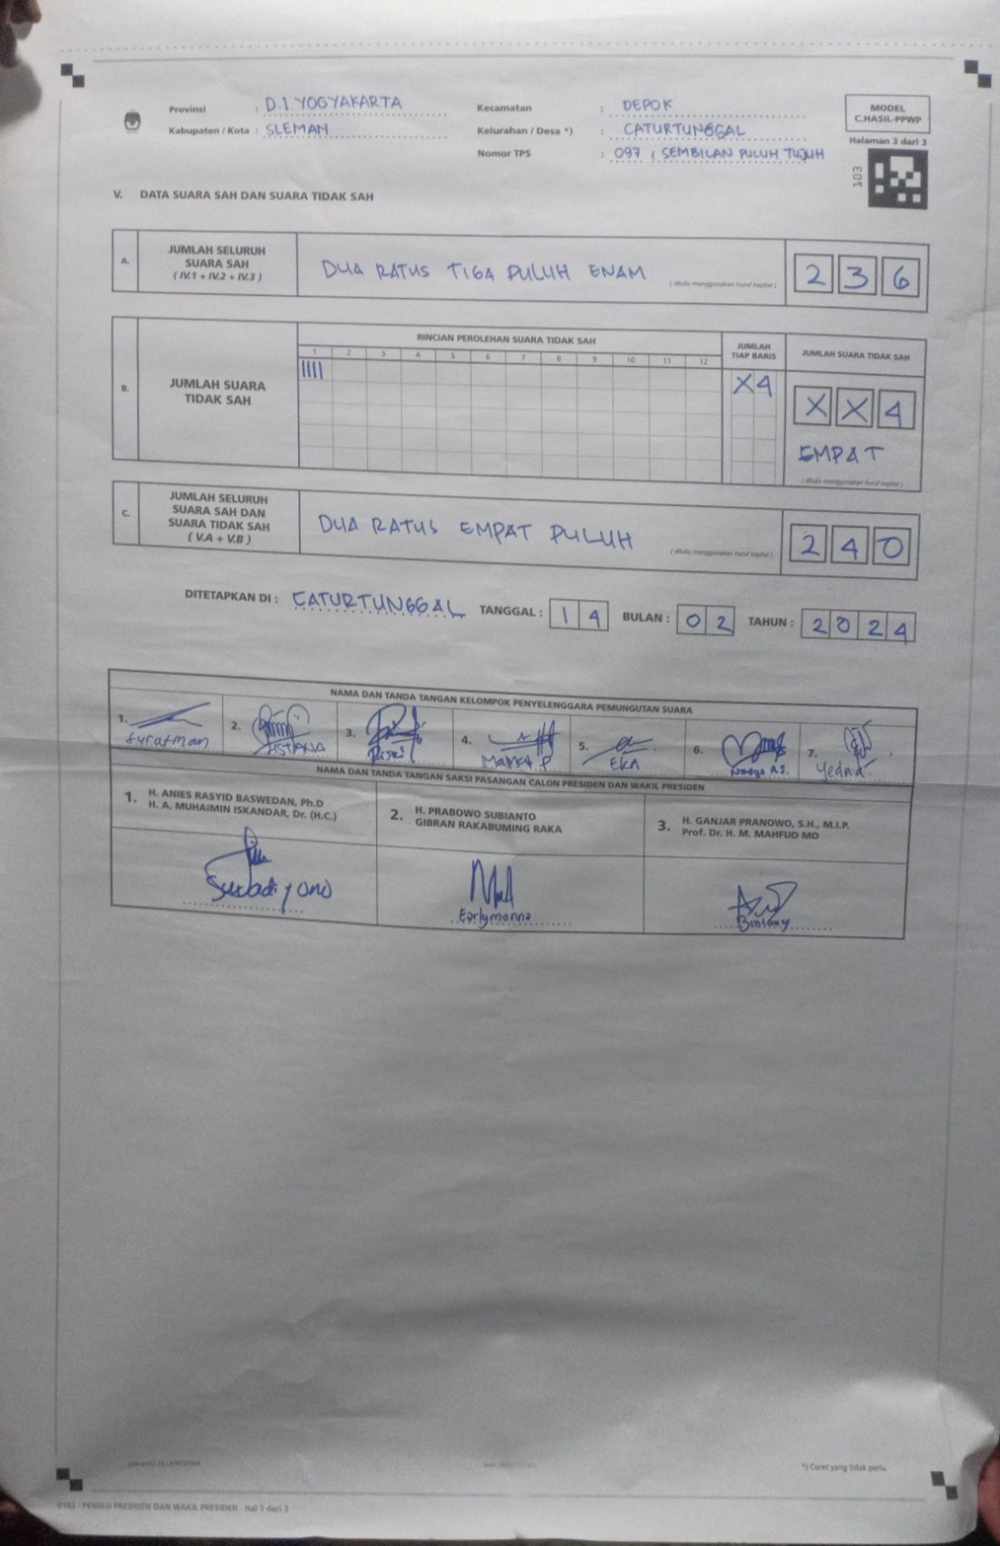 Provinsi : D.I. YOGYAKARTA
Kabupaten / Kota : SLEMAN
Kecamatan : DEPOK
Kelurahan / Desa *) : CATURTUNGGAL
Nomor TPS : 097 ( SEMBILAN PULUH TUJUH
MODEL
C.HASIL-PPWP
Halaman 3 dari 3
V. DATA SUARA SAH DAN SUARA TIDAK SAH
A. JUMLAH SELURUH
SUARA SAH
( IV.1 + IV.2 + IV.3 )
DUA RATUS TIGA PULUH ENAM
( ditulis menggunakan huruf kapital )
2 3 6
B. JUMLAH SUARA
TIDAK SAH
RINCIAN PEROLEHAN SUARA TIDAK SAH
1 2 3 4 5 6 7 8 9 10 11 12
JUMLAH
TIAP BARIS
JUMLAH SUARA TIDAK SAH
IIII
X4
X X 4
EMPAT
( ditulis menggunakan huruf kapital )
C. JUMLAH SELURUH
SUARA SAH DAN
SUARA TIDAK SAH
( V.A + V.B )
DUA RATUS EMPAT PULUH
( ditulis menggunakan huruf kapital )
2 4 0
DITETAPKAN DI : CATURTUNGGAL TANGGAL : 1 4 BULAN : 0 2 TAHUN : 2 0 2 4
NAMA DAN TANDA TANGAN KELOMPOK PENYELENGGARA PEMUNGUTAN SUARA
1. Suratman
2. ISTIANA
3.
4.
5. EKA
6. A.S.
7.
NAMA DAN TANDA TANGAN SAKSI PASANGAN CALON PRESIDEN DAN WAKIL PRESIDEN
1. H. ANIES RASYID BASWEDAN, Ph.D
H. A. MUHAIMIN ISKANDAR, Dr. (H.C.)
2. H. PRABOWO SUBIANTO
GIBRAN RAKABUMING RAKA
3. H. GANJAR PRANOWO, S.H., M.I.P.
Prof. Dr. H. M. MAHFUD MD
Earlymonna
*) Coret yang tidak perlu
PEMILU PRESIDEN DAN WAKIL PRESIDEN - Hal 3 dari 3